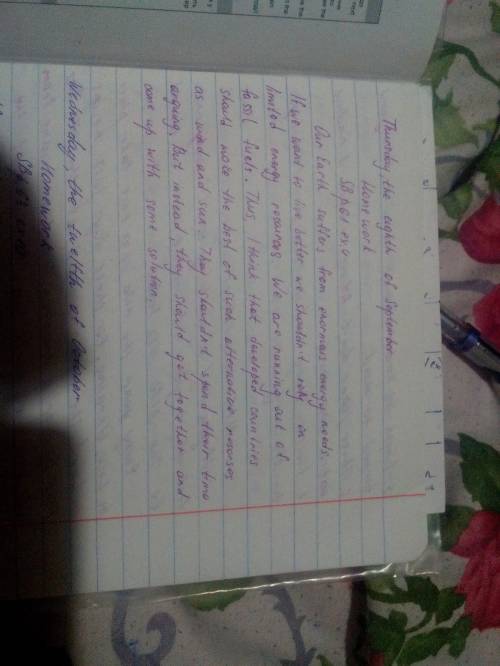 Thursday, the eighth of September
Homework
SB p61 ex 4
Our Earth suffers from enormous energy needs.
If we want to live better we shouldn't rely on
limited energy resources. We are running out of
fossil fuels. Thus, I think that developed countries
should make the best of such alternative resorses
as wind and sun. They shouldn't spend their time
arguing. But instead, they should get together and
come up with some solution.
Wednesday, the twelfth of October
Homework
SB p63